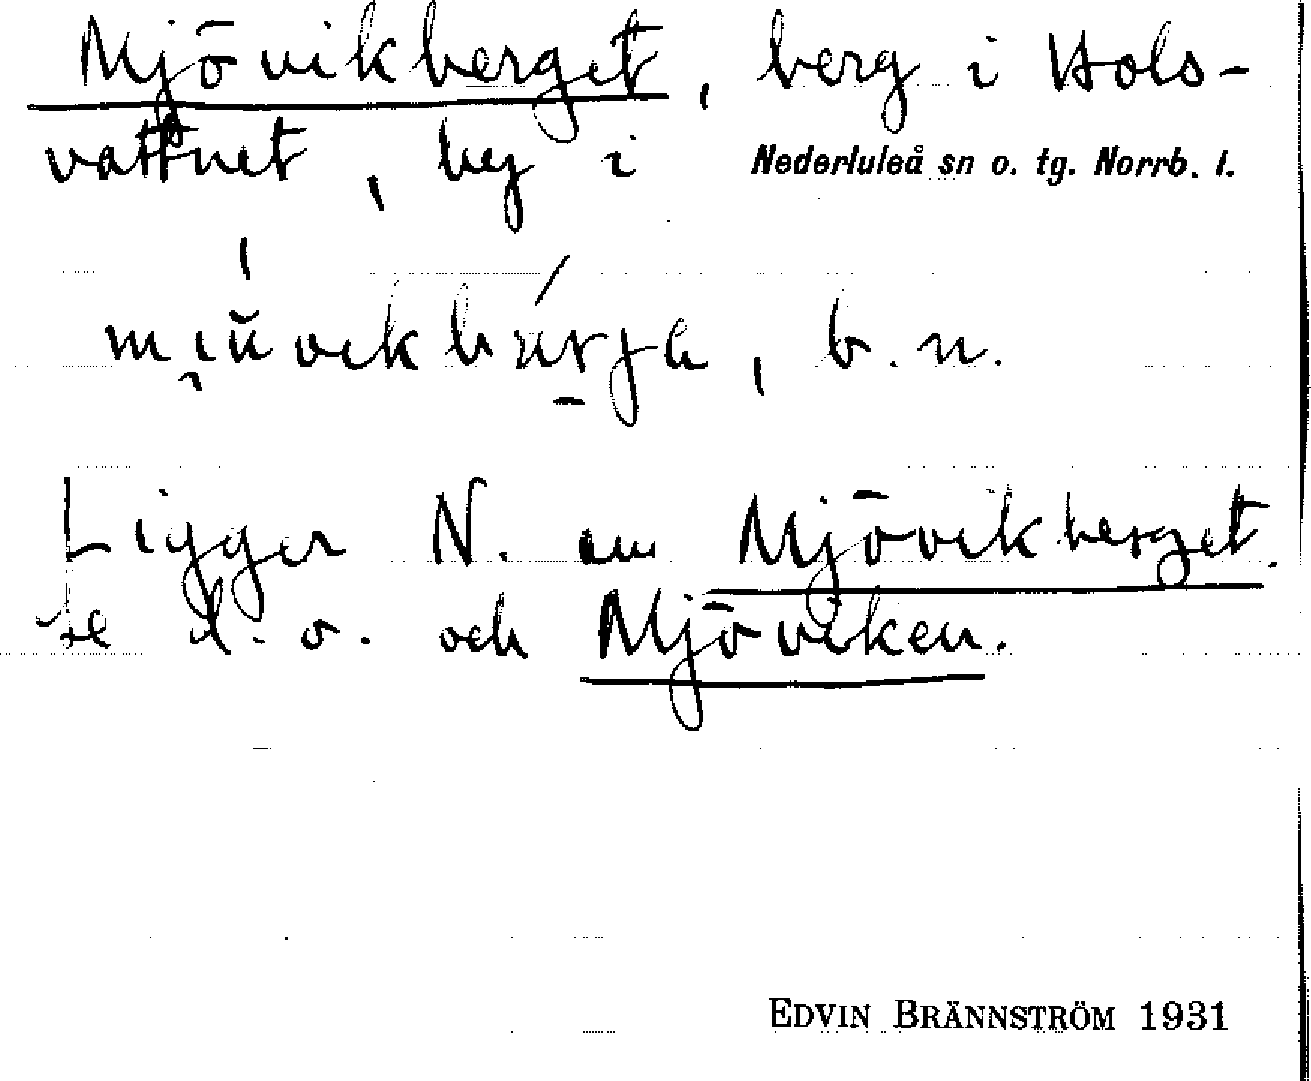 Mjövikberget, berg i Hols-
vattnet, by i Nederluleå sn o. tg. Norrb. l.
b. n.
Ligger N. om Mjövikberget.
se d. o. och Mjöviken.
EDVIN BRÄNNSTRÖM 1931